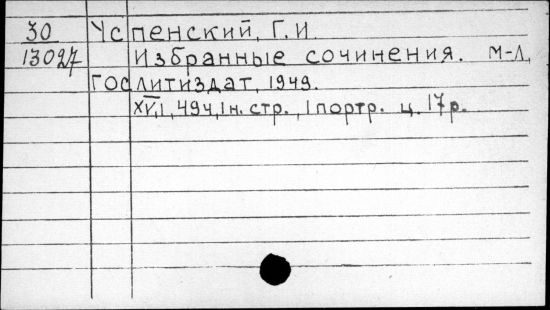 30 Успенский, Г.И.
13027 Избранные сочинения. М-Л,
Гослитиздат, 1949.
XVI, 494, 1н. стр., 1 портр. ц. 17р.